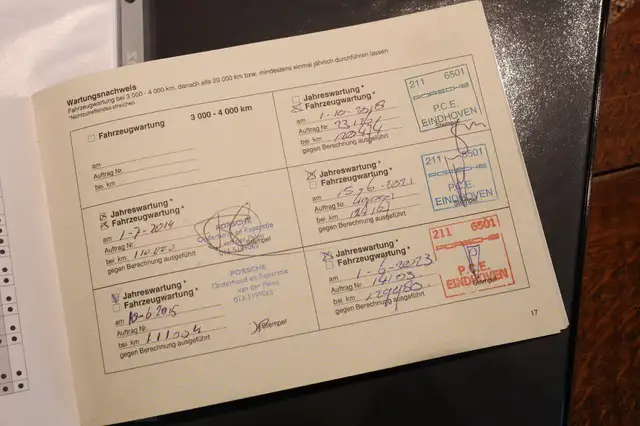 Wartungsnachweis
Fahrzeugwartung bei 3 000 - 4 000 km, danach alle 20 000 km bzw. mindestens einmal jährlich durchführen lassen.
*Nichtzutreffendes streichen
Fahrzeugwartung 3 000 - 4 000 km
am
Auftrag Nr.
bei km
gegen Berechnung ausgeführt
Jahreswartung *
Fahrzeugwartung *
am 1-7-2014
Auftrag Nr.
bei km 110.000
gegen Berechnung ausgeführt
Stempel
PORSCHE
Onderhoud en Reparatie
Jahreswartung *
Fahrzeugwartung *
am 10-6-2015
Auftrag Nr.
bei km 111004
gegen Berechnung ausgeführt
Stempel
PORSCHE
Onderhoud en Reparatie
Jahreswartung *
Fahrzeugwartung *
am 1-10-2018
Auftrag Nr.
bei km
gegen Berechnung ausgeführt
Stempel
211 6501
PORSCHE
P.C.E.
EINDHOVEN
Jahreswartung *
Fahrzeugwartung *
am 15-6-2021
Auftrag Nr.
bei km
gegen Berechnung ausgeführt
211 6501
PORSCHE
P.C.E.
EINDHOVEN
Jahreswartung *
Fahrzeugwartung *
am 1-6-2023
Auftrag Nr. 14103
bei km 129480
gegen Berechnung ausgeführt
Stempel
211 6501
PORSCHE
P.C.E.
EINDHOVEN
17